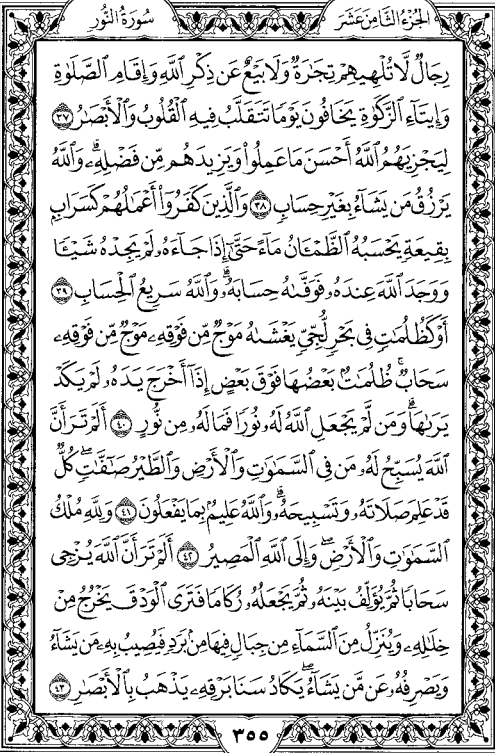 الجُزءُ الثَّامِنَ عَشَرَ
سُورَةُ النُّورِ
رِجَالٌ لَّا تُلْهِيهِمْ تِجَٰرَةٌ وَلَا بَيْعٌ عَن ذِكْرِ ٱللَّهِ وَإِقَامِ ٱلصَّلَوٰةِ
وَإِيتَآءِ ٱلزَّكَوٰةِ يَخَافُونَ يَوْمًا تَتَقَلَّبُ فِيهِ ٱلْقُلُوبُ وَٱلْأَبْصَٰرُ ٣٧
لِيَجْزِيَهُمُ ٱللَّهُ أَحْسَنَ مَا عَمِلُوا۟ وَيَزِيدَهُم مِّن فَضْلِهِۦ ۗ وَٱللَّهُ
يَرْزُقُ مَن يَشَآءُ بِغَيْرِ حِسَابٍ ٣٨ وَٱلَّذِينَ كَفَرُوٓا۟ أَعْمَٰلُهُمْ كَسَرَابٍۭ
بِقِيعَةٍ يَحْسَبُهُ ٱلظَّمْـَٔانُ مَآءً حَتَّىٰٓ إِذَا جَآءَهُۥ لَمْ يَجِدْهُ شَيْـًٔا
وَوَجَدَ ٱللَّهَ عِندَهُۥ فَوَفَّىٰهُ حِسَابَهُۥ ۗ وَٱللَّهُ سَرِيعُ ٱلْحِسَابِ ٣٩
أَوْ كَظُلُمَٰتٍ فِى بَحْرٍ لُّجِّىٍّ يَغْشَىٰهُ مَوْجٌ مِّن فَوْقِهِۦ مَوْجٌ مِّن فَوْقِهِۦ
سَحَابٌ ۚ ظُلُمَٰتٌۢ بَعْضُهَا فَوْقَ بَعْضٍ إِذَآ أَخْرَجَ يَدَهُۥ لَمْ يَكَدْ
يَرَىٰهَا ۗ وَمَن لَّمْ يَجْعَلِ ٱللَّهُ لَهُۥ نُورًا فَمَا لَهُۥ مِن نُّورٍ ٤٠ أَلَمْ تَرَ أَنَّ
ٱللَّهَ يُسَبِّحُ لَهُۥ مَن فِى ٱلسَّمَٰوَٰتِ وَٱلْأَرْضِ وَٱلطَّيْرُ صَٰٓفَّٰتٍ ۖ كُلٌّ
قَدْ عَلِمَ صَلَاتَهُۥ وَتَسْبِيحَهُۥ ۗ وَٱللَّهُ عَلِيمٌۢ بِمَا يَفْعَلُونَ ٤١ وَلِلَّهِ مُلْكُ
ٱلسَّمَٰوَٰتِ وَٱلْأَرْضِ ۖ وَإِلَى ٱللَّهِ ٱلْمَصِيرُ ٤٢ أَلَمْ تَرَ أَنَّ ٱللَّهَ يُزْجِى
سَحَابًا ثُمَّ يُؤَلِّفُ بَيْنَهُۥ ثُمَّ يَجْعَلُهُۥ رُكَامًا فَتَرَى ٱلْوَدْقَ يَخْرُجُ مِنْ
خِلَٰلِهِۦ وَيُنَزِّلُ مِنَ ٱلسَّمَآءِ مِن جِبَالٍ فِيهَا مِنۢ بَرَدٍ فَيُصِيبُ بِهِۦ مَن يَشَآءُ
وَيَصْرِفُهُۥ عَن مَّن يَشَآءُ ۖ يَكَادُ سَنَا بَرْقِهِۦ يَذْهَبُ بِٱلْأَبْصَٰرِ ٤٣
٣٥٥